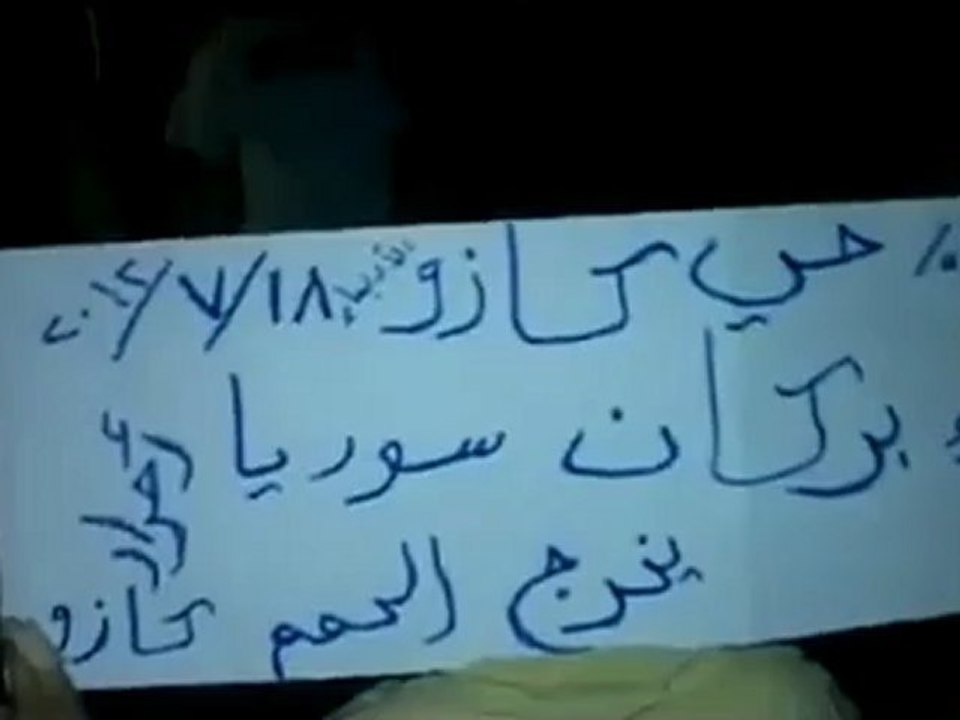 حي كازو الأربعاء ١٨/٧/٢٠١٢
بركان سوريا
يخرج الحمم
أحرار كازو